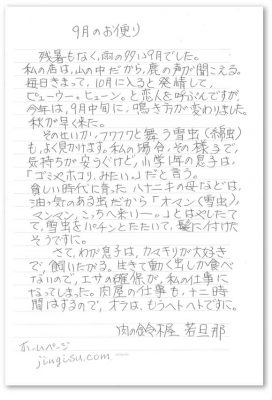 9月のお便り
残暑もなく、雨の多い9月でした。
私の店は、山の中だから、鹿の声が聞こえる。
毎日きまって、10月に入ると発情して、
ピューウー。ピューン。と恋人を呼ぶんですが
今年は、9月中旬に、鳴き方が変わりました。
秋が早く来た。
そのせいか、フワフワと舞う雪虫(綿虫)
も、よく見かけます。私の場合、その様子で、
気持ちが安らぐけど、小学1年の息子は、
「ゴミやホコリ、みたい。」だと言う。
食い時代に育った、ハナニキの母などは、
油っ気のある虫だから「オマン(雪虫)、
マンマン、こっちへ来いー。」とはやしたて
て、雪虫をパチンとたたいて、髪に付けた
そうですに。
さて、わが息子は、カマキリが大好き
で、飼いたがる。生きて動く虫しか食べ
ないので、エサの確保が、私の仕事に
なってしまった。肉屋の仕事も、十二時
間はするので、オラは、もうヘトヘトですに。
肉の鈴木屋 若旦那
ホームページ
jingisu.com